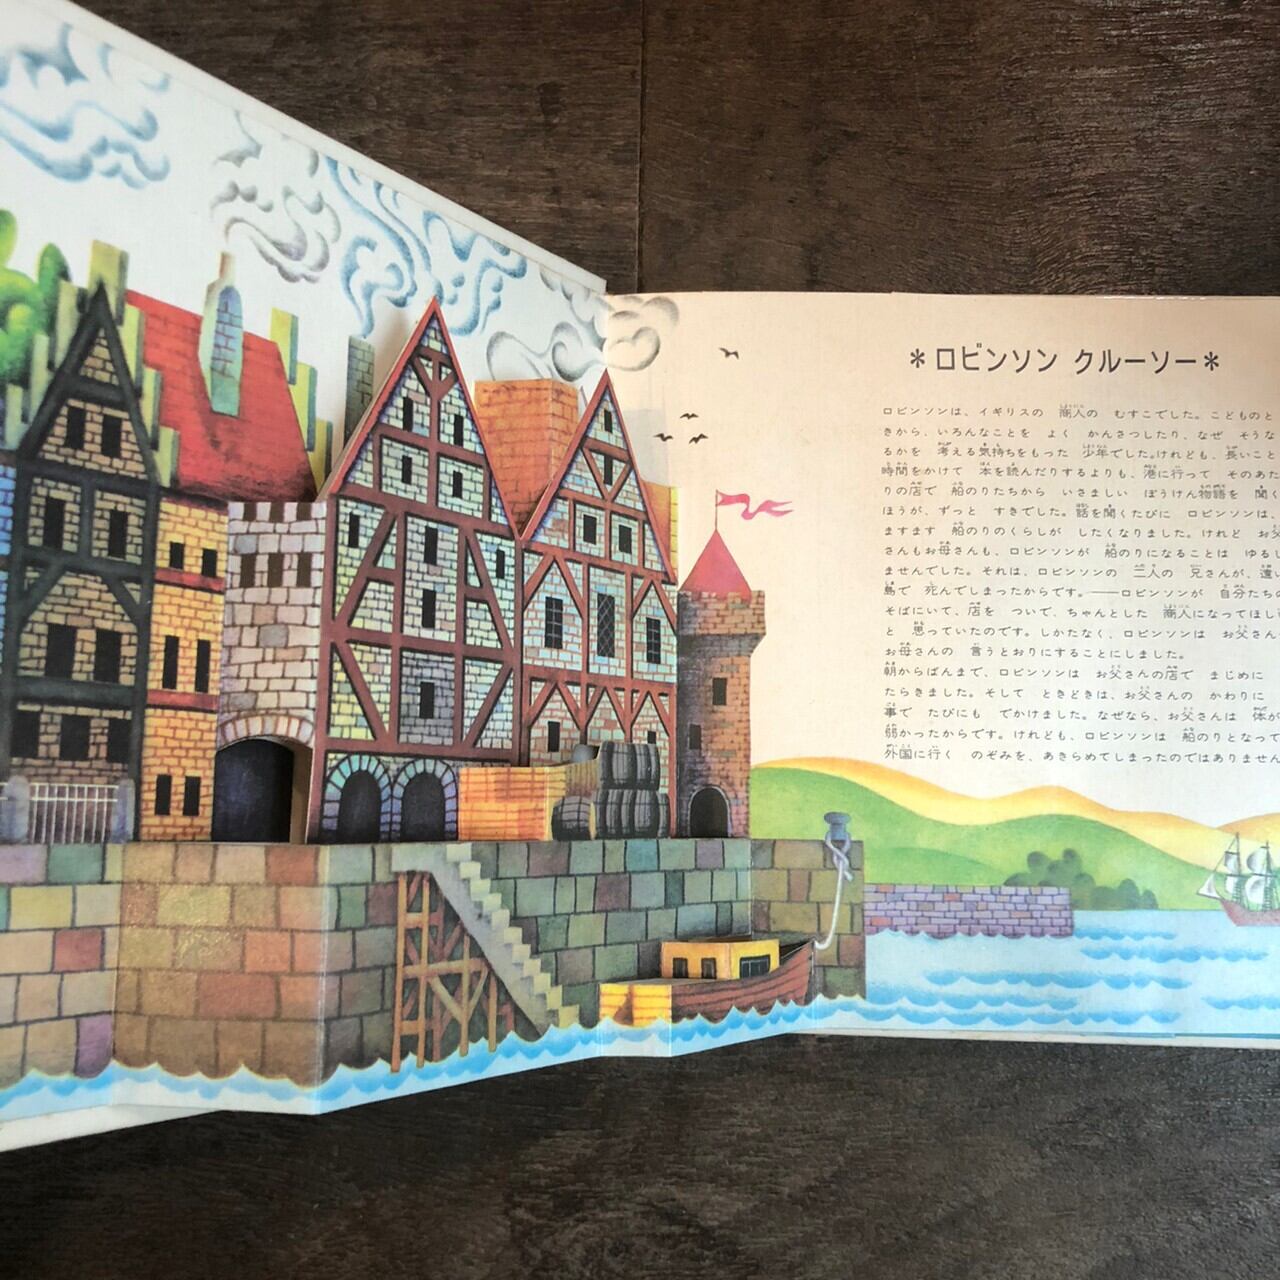 ＊ロビンソン クルーソー＊
ロビンソンは、イギリスの 商人の むすこでした。こどものと
きから、いろんなことを よく かんさつしたり、なぜ そうな
るかを 考える気持ちをもった 少年でした。けれども、長いこと
時間をかけて 本を読んだりするよりも、港に行って そのあた
りの店で 船のりたちから いさましい ぼうけん物語を 聞く
ほうが、ずっと すきでした。話を聞くたびに ロビンソンは、
ますます 船のりのくらしが したくなりました。けれど お父
さんもお母さんも、ロビンソンが 船のりになることは ゆるし
ませんでした。それは、ロビンソンの 二人の 兄さんが、遠い
島で 死んでしまったからです。――ロビンソンが 自分たちの
そばにいて、店を ついで、ちゃんとした 商人になってほし
と 思っていたのです。しかたなく、ロビンソンは お父さん
お母さんの 言うとおりにすることにしました。
朝からばんまで、ロビンソンは お父さんの店で まじめに
たらきました。そして ときどきは、お父さんの かわりに
事で たびにも でかけました。なぜなら、お父さんは 体が
弱かったからです。けれども、ロビンソンは 船のりとなって
外国に行く のぞみを、あきらめてしまったのではありません